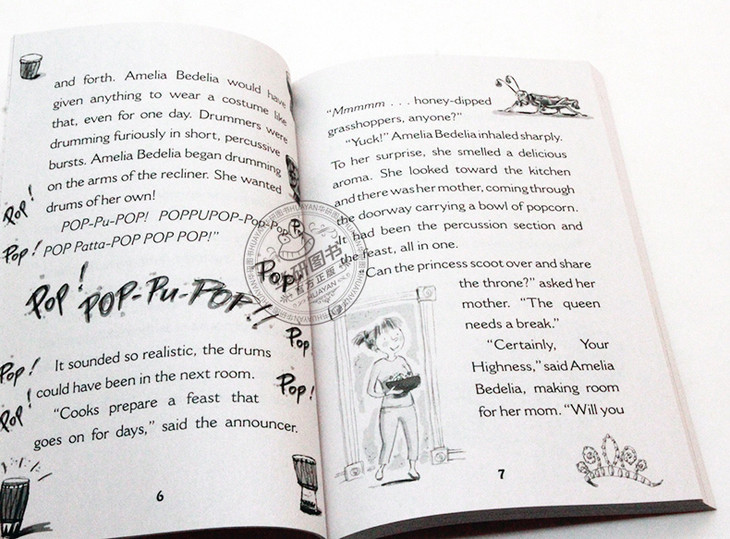 and forth. Amelia Bedelia would have
given anything to wear a costume like
that, even for one day. Drummers were
drumming furiously in short, percussive
bursts. Amelia Bedelia began drumming
on the arms of the recliner. She wanted
drums of her own!
Pop!
POP-Pu-POP! POPPUPOP-Pop-Pop
Pop!
POP Patta-POP POP POP!”
Pop!
POP-Pu-POP!!
Pop!
It sounded so realistic, the drums
could have been in the next room.
Pop!
“Cooks prepare a feast that
goes on for days,” said the announcer.
Pop!
Pop!
Pop!
6
“Mmmmm . . . honey-dipped
grasshoppers, anyone?”
“Yuck!” Amelia Bedelia inhaled sharply.
To her surprise, she smelled a delicious
aroma. She looked toward the kitchen
and there was her mother, coming through
the doorway carrying a bowl of popcorn.
It had been the percussion section and
the feast, all in one.
“Can the princess scoot over and share
the throne?” asked her
mother. “The queen
needs a break.”
“Certainly, Your
Highness,” said Amelia
Bedelia, making room
for her mom. “Will you
7
华研图书
官方正版
HUAYAN